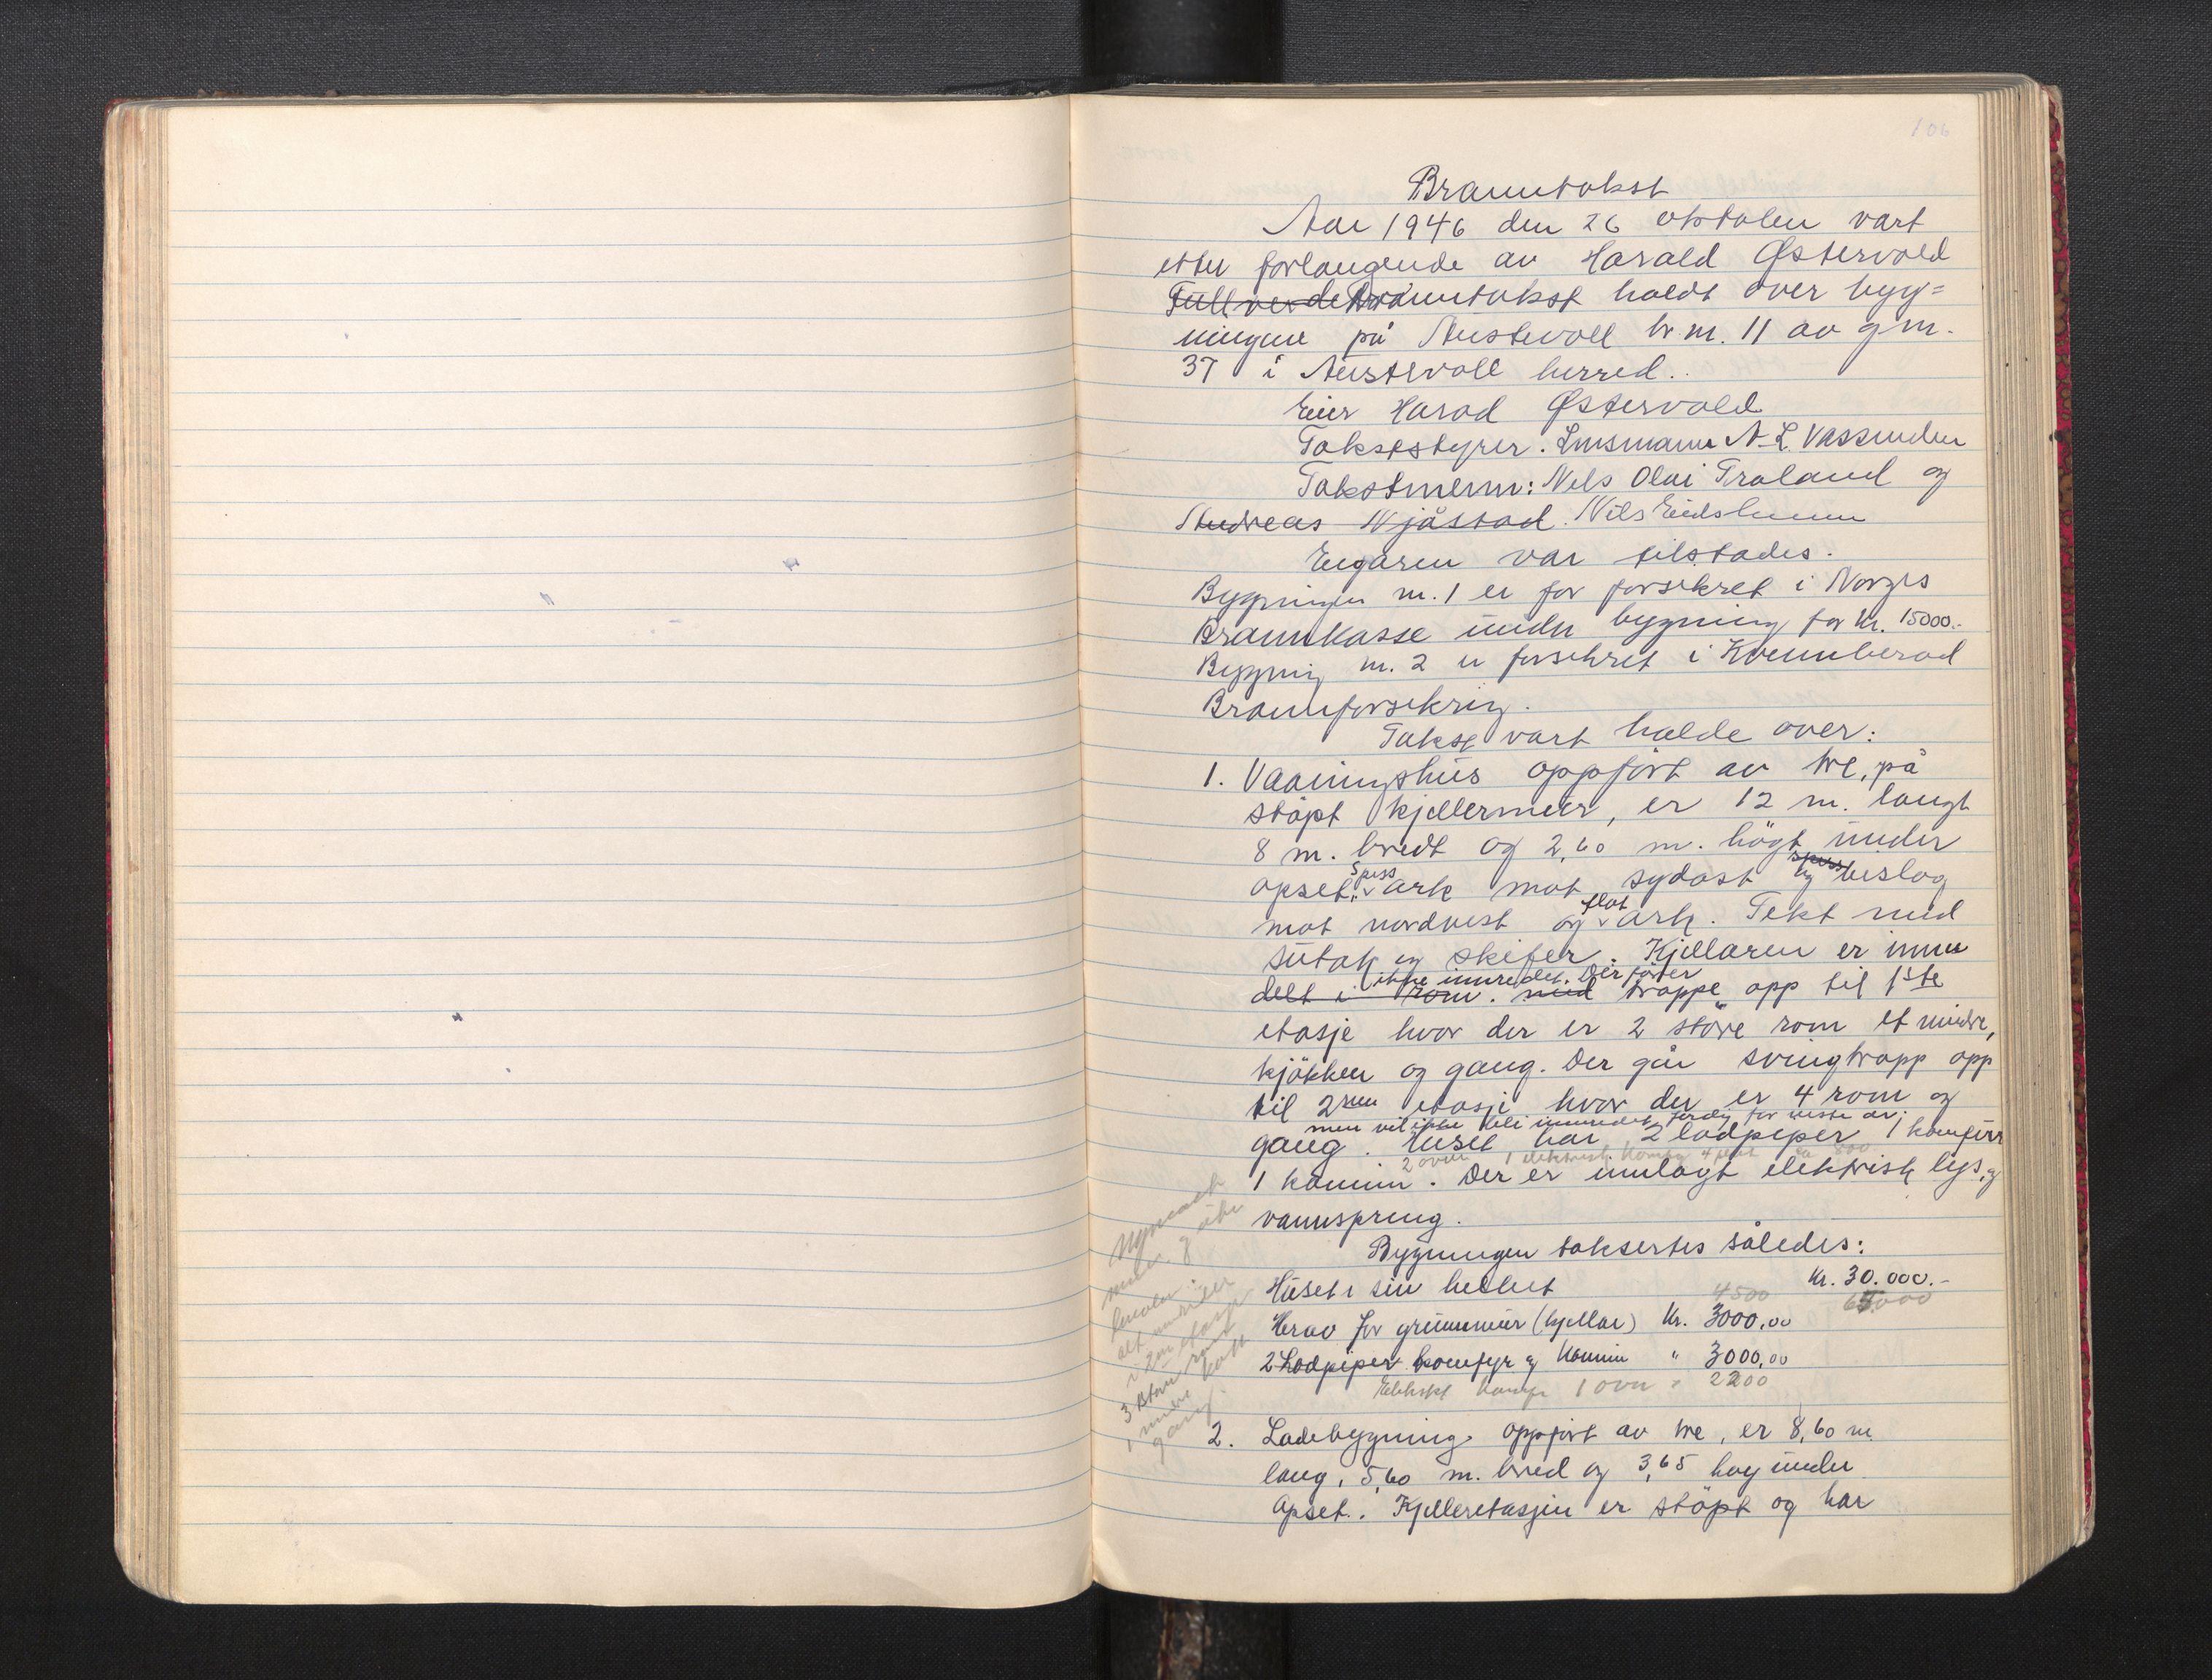 106
Branntakst
Aar 1946 den 26 oktober vart
etter forlangende av Harald Østervold
Fullverde Branntakst holdt over byg=
ningene på Austevoll br.nr. 11 av g.nr.
37 i Austevoll herred.
Eier Harad Østervold
Takststyrer. Lensmann N. L. Vassenden
Takstmenn: Nils Olai Træland og
Andreas Njåstad. Nils
Eigaren var tilstades.
Bygningen nr. 1 er før forsikret i Norges
Brannkasse under bygning for kr. 15000.-
Bygning nr. 2 er forsikret i Kvennherad
Brannforsikring.
Takst vart halde over:
1. Vaaningshus oppført av tre, på
støpt kjellermur, er 12 m. langt
8 m. bredt og 2,60 m. høgt under
spiss
opset. spiss ark mot sydøst og bislag
mot nordvest og flat ark. Tekt med
sutak og skifer. Kjellaren er inne
ikke innredet. Der fører
delt i rom. med trappe opp til 1ste
etasje hvor der er 2 större rom et mindre,
kjøkken og gang. Der går svingtrapp opp
til 2nen etasje hvor der er 4 rom og
men vil ikke bli innredet ferdig før neste år.
gang. Huset har 2 lodpiper 1 komfyr
2 ovner 1 elektrisk komfyr 4 plat
1 kamin. Der er innlagt elektrisk lys og
vannspreng.
Bygningen takseres således:
Huset i sin helhet Kr. 30.000.-
4500 65000
Herav for grunnmur (kjellar) Kr. 3000,00
2 Lodpiper komfyr og kamin " 3000,00
Elektrisk komfyr 1 ovn " 2200
i 2en etasje
3 store rom
1 mindre
gang.
2. Ladebygning oppført av tre, er 8,60 m
lang, 5,60 m. bred og 3,65 høg under
Opset. Kjelleretasjen er støpt og har